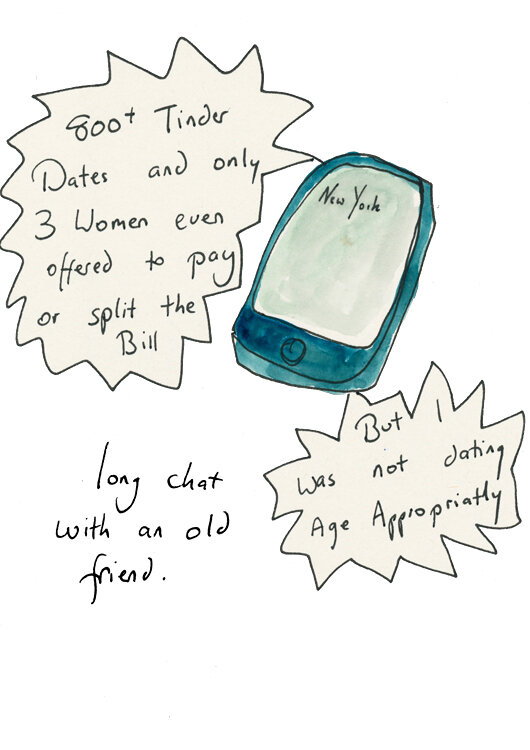 800+ Tinder
Dates and only
3 Women even
offered to pay
or split the
Bill
New York
But I
was not dating
Age Appropriatly
long chat
with an old
friend.